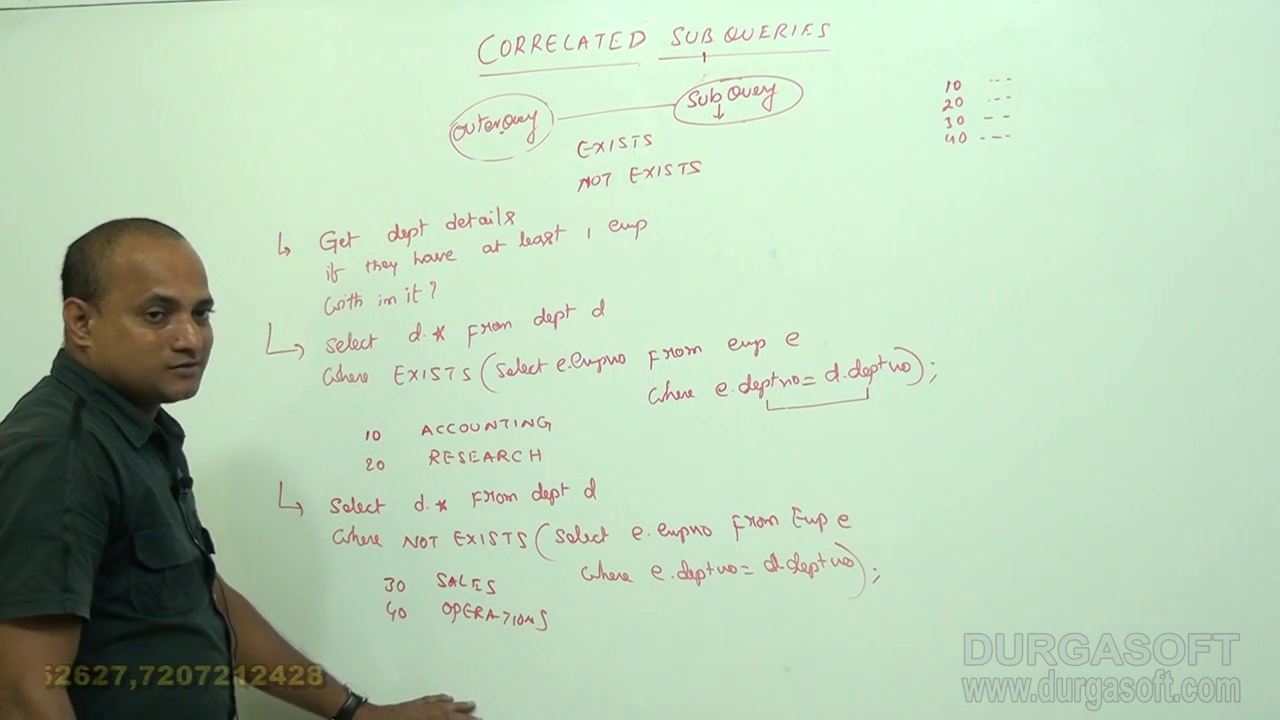 CORRELATED SUB QUERIES
OuterQuery SubQuery
EXISTS
NOT EXISTS
10 ---
20 ---
30 --
40 ---
Get dept details
if they have at least 1 emp
with in it?
Select d.* From dept d
Where EXISTS (Select e.empno From emp e
Where e.deptno = d.deptno);
10 ACCOUNTING
20 RESEARCH
Select d.* From dept d
Where NOT EXISTS (Select e.empno From Emp e
Where e.deptno = d.deptno);
30 SALES
40 OPERATIONS
62627,7207212428
DURGASOFT
www.durgasoft.com